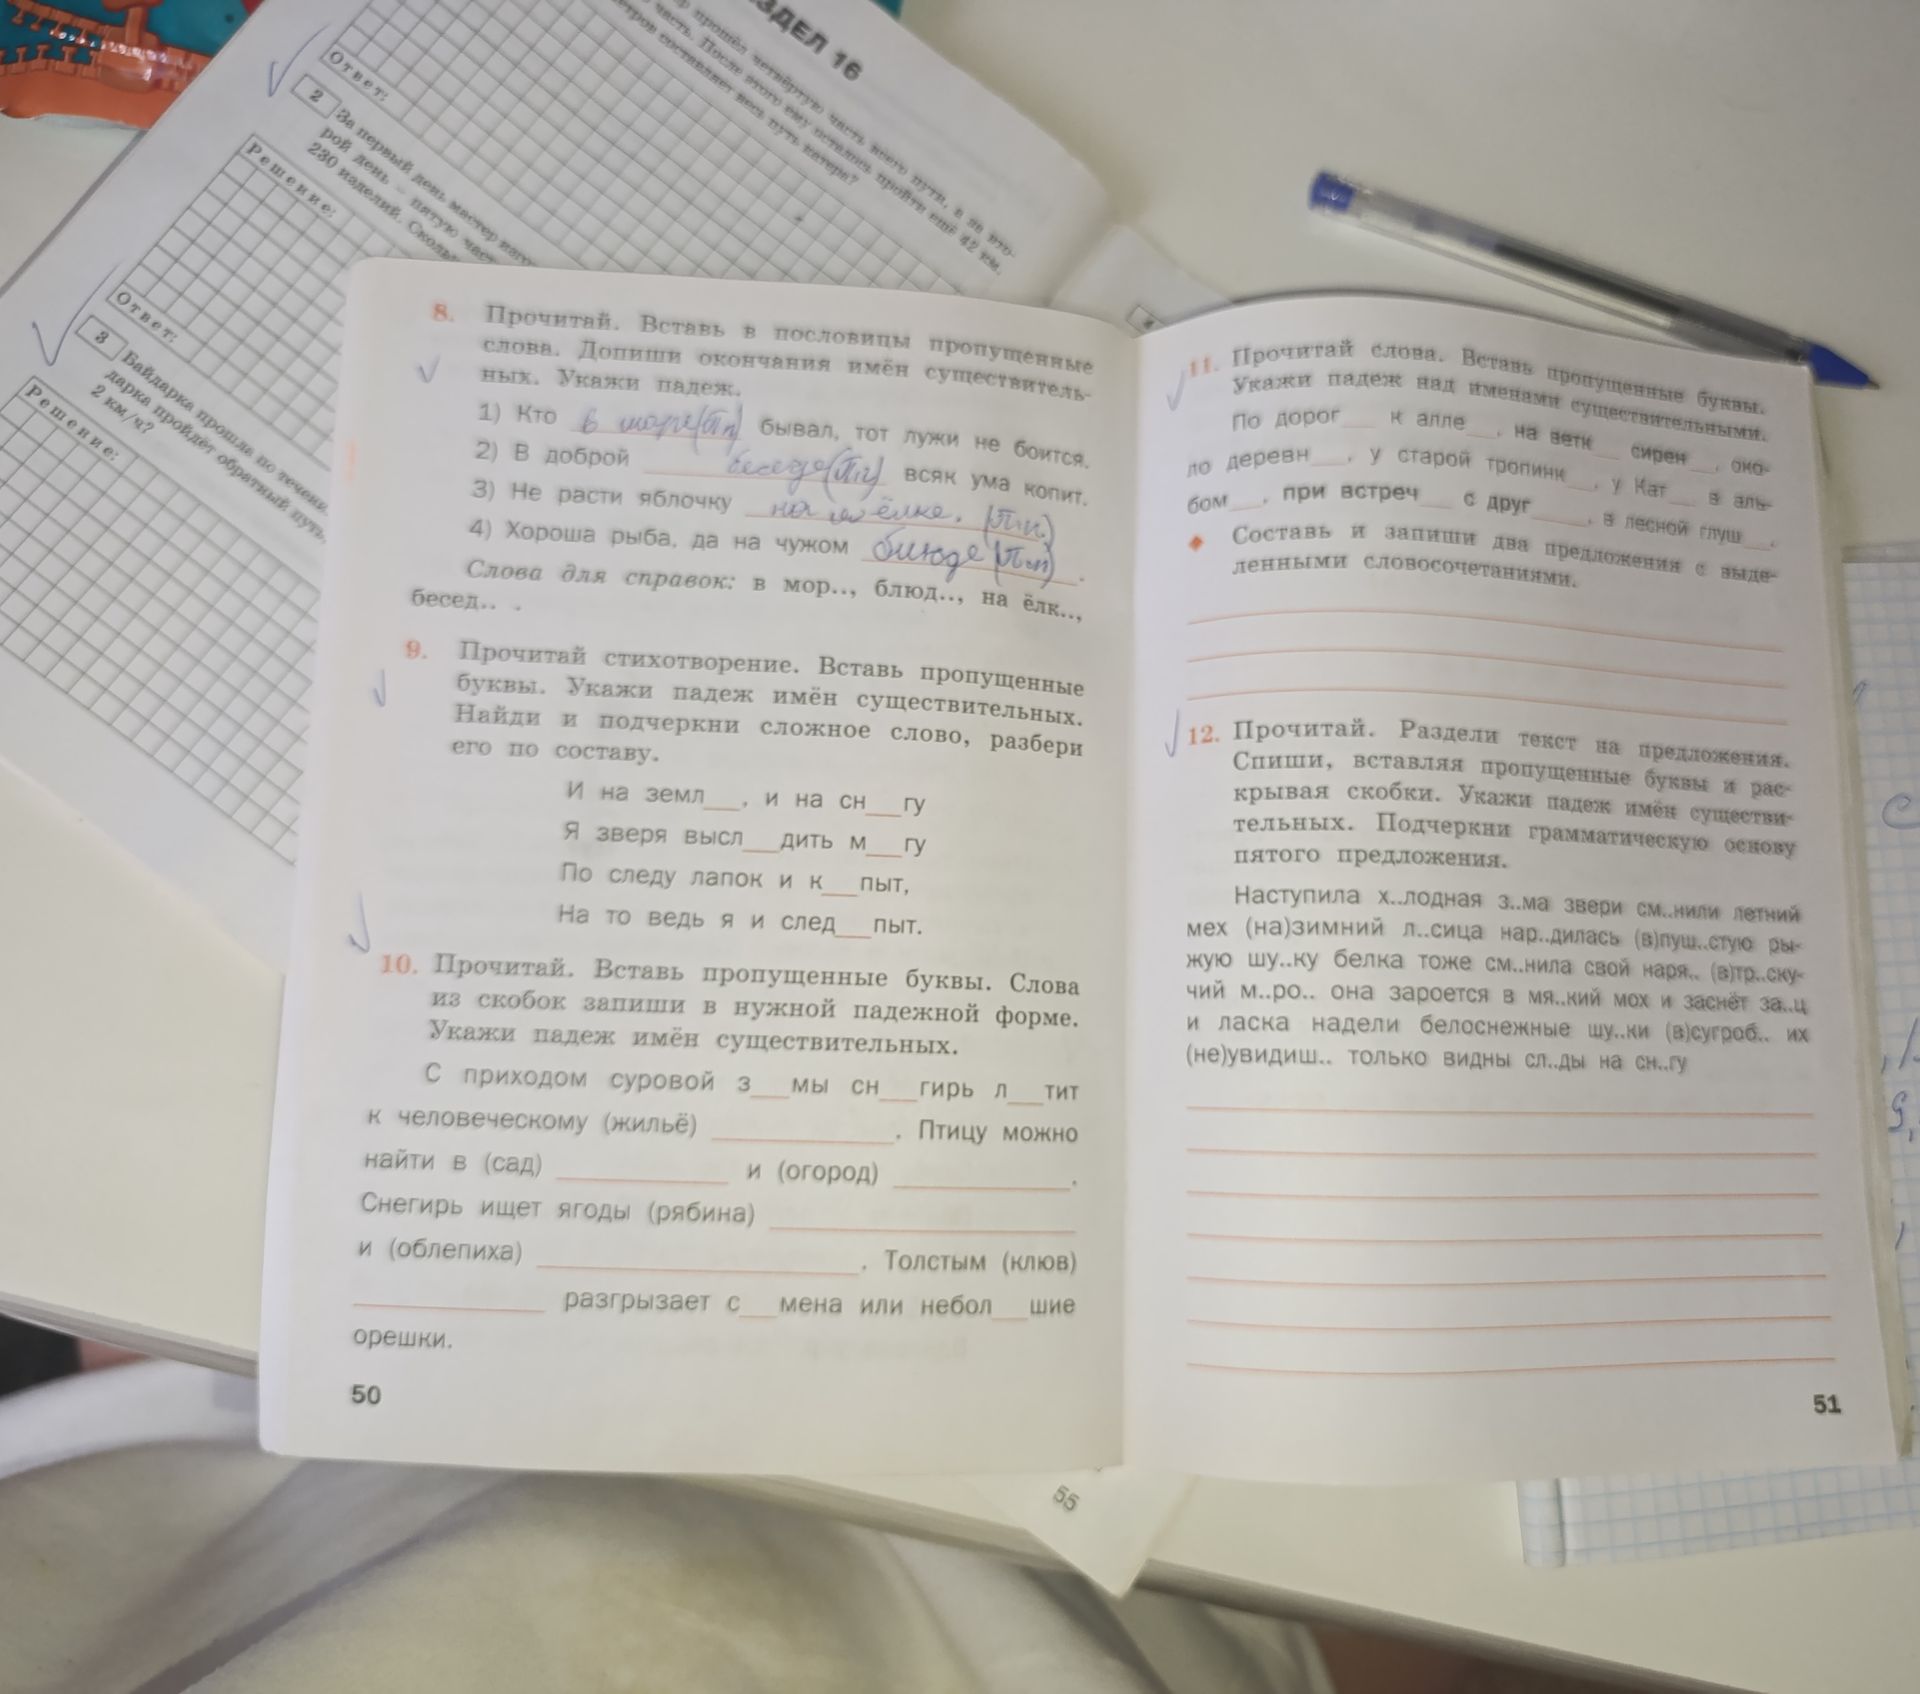 РАЗДЕЛ 16
р прошёл четвёртую часть всего пути, а за вто-
часть. После этого ему осталось пройти ещё 42 км.
метров составляет весь путь катера?
Ответ:
2 За первый день мастер изго
рой день – пятую час
230 изделий. Сколь
Решение:
Ответ:
3 Байдарка прошла по течени
дарка пройдёт обратный путь,
2 км/ч?
Решение:
8. Прочитай. Вставь в пословицы пропущенные
слова. Допиши окончания имён существитель-
ных. Укажи падеж.
1) Кто в море (П.п) бывал, тот лужи не боится.
2) В доброй беседе (П.п) всяк ума копит.
3) Не расти яблочку на ёлке. (П.п.)
4) Хороша рыба, да на чужом блюде (П.п) .
Слова для справок: в мор.., блюд.., на ёлк..,
бесед.. .
9. Прочитай стихотворение. Вставь пропущенные
буквы. Укажи падеж имён существительных.
Найди и подчеркни сложное слово, разбери
его по составу.
И на земл__, и на сн__гу
Я зверя высл__дить м__гу
По следу лапок и к__пыт,
На то ведь я и след__пыт.
10. Прочитай. Вставь пропущенные буквы. Слова
из скобок запиши в нужной падежной форме.
Укажи падеж имён существительных.
С приходом суровой з__мы сн__гирь л__тит
к человеческому (жильё) ____________. Птицу можно
найти в (сад) ____________ и (огород) ____________.
Снегирь ищет ягоды (рябина) ____________
и (облепиха) ____________. Толстым (клюв)
____________ разгрызает с__мена или небол__шие
орешки.
50
11. Прочитай слова. Вставь пропущенные буквы.
Укажи падеж над именами существительными.
По дорог__ к алле__, на ветк__ сирен__, око-
ло деревн__, у старой тропинк__, у Кат__ в аль-
бом__, при встреч__ с друг____, в лесной глуш__.
Составь и запиши два предложения с выде-
ленными словосочетаниями.
12. Прочитай. Раздели текст на предложения.
Спиши, вставляя пропущенные буквы и рас-
крывая скобки. Укажи падеж имён существи-
тельных. Подчеркни грамматическую основу
пятого предложения.
Наступила х..лодная з..ма звери см..нили летний
мех (на)зимний л..сица нар..дилась (в)пуш..стую ры-
жую шу..ку белка тоже см..нила свой наря.. (в)тр..ску-
чий м..ро.. она зароется в мя..кий мох и заснёт за..ц
и ласка надели белоснежные шу..ки (в)сугроб.. их
(не)увидиш.. только видны сл..ды на сн..гу
51
55